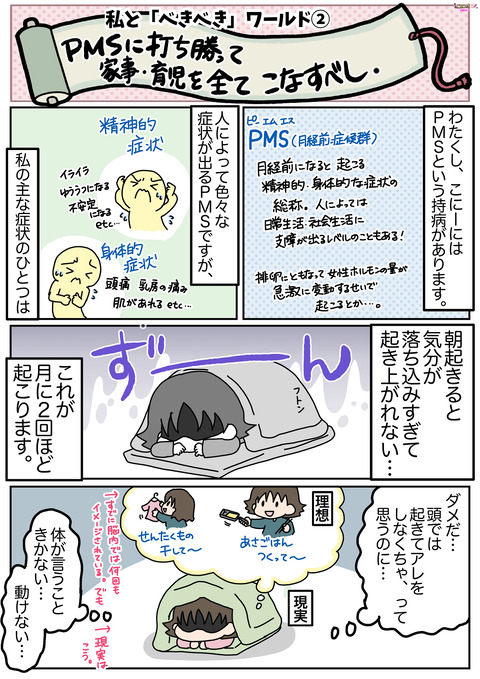 私と「べきべき」ワールド②
PMSに打ち勝って
家事・育児を全て こなすべし.
わたくし、こにーには
PMSという持病があります。
ピー エム エス
PMS(月経前症候群)
月経前になると 起こる
精神的・身体的な症状の
総称。人によっては
日常生活・社会生活に
支障が出るレベルのこともある!
排卵にともなって女性ホルモンの量が
急激に変動するせいで
起こるとか…。
人によって色々な
症状が出るPMSですが、
精神的
症状
イライラ
ゆううつになる
不安定
になる
etc…
身体的
症状
頭痛 乳房の痛み
肌があれる etc…
私の主な症状のひとつは
朝起きると
気分が
落ち込みすぎて
起き上がれない…
ずーーん
フトン
これが
月に2回ほど
起こります。
ダメだ…
頭では
起きてアレを
しなくちゃ、って
思うのに…
理想
あさごはん
つくって〜
せんたくもの
干して〜
→すでに脳内では何回も
イメージされている。でも
現実
→現実は
こう。
体が言うこと
きかない…
動けない…